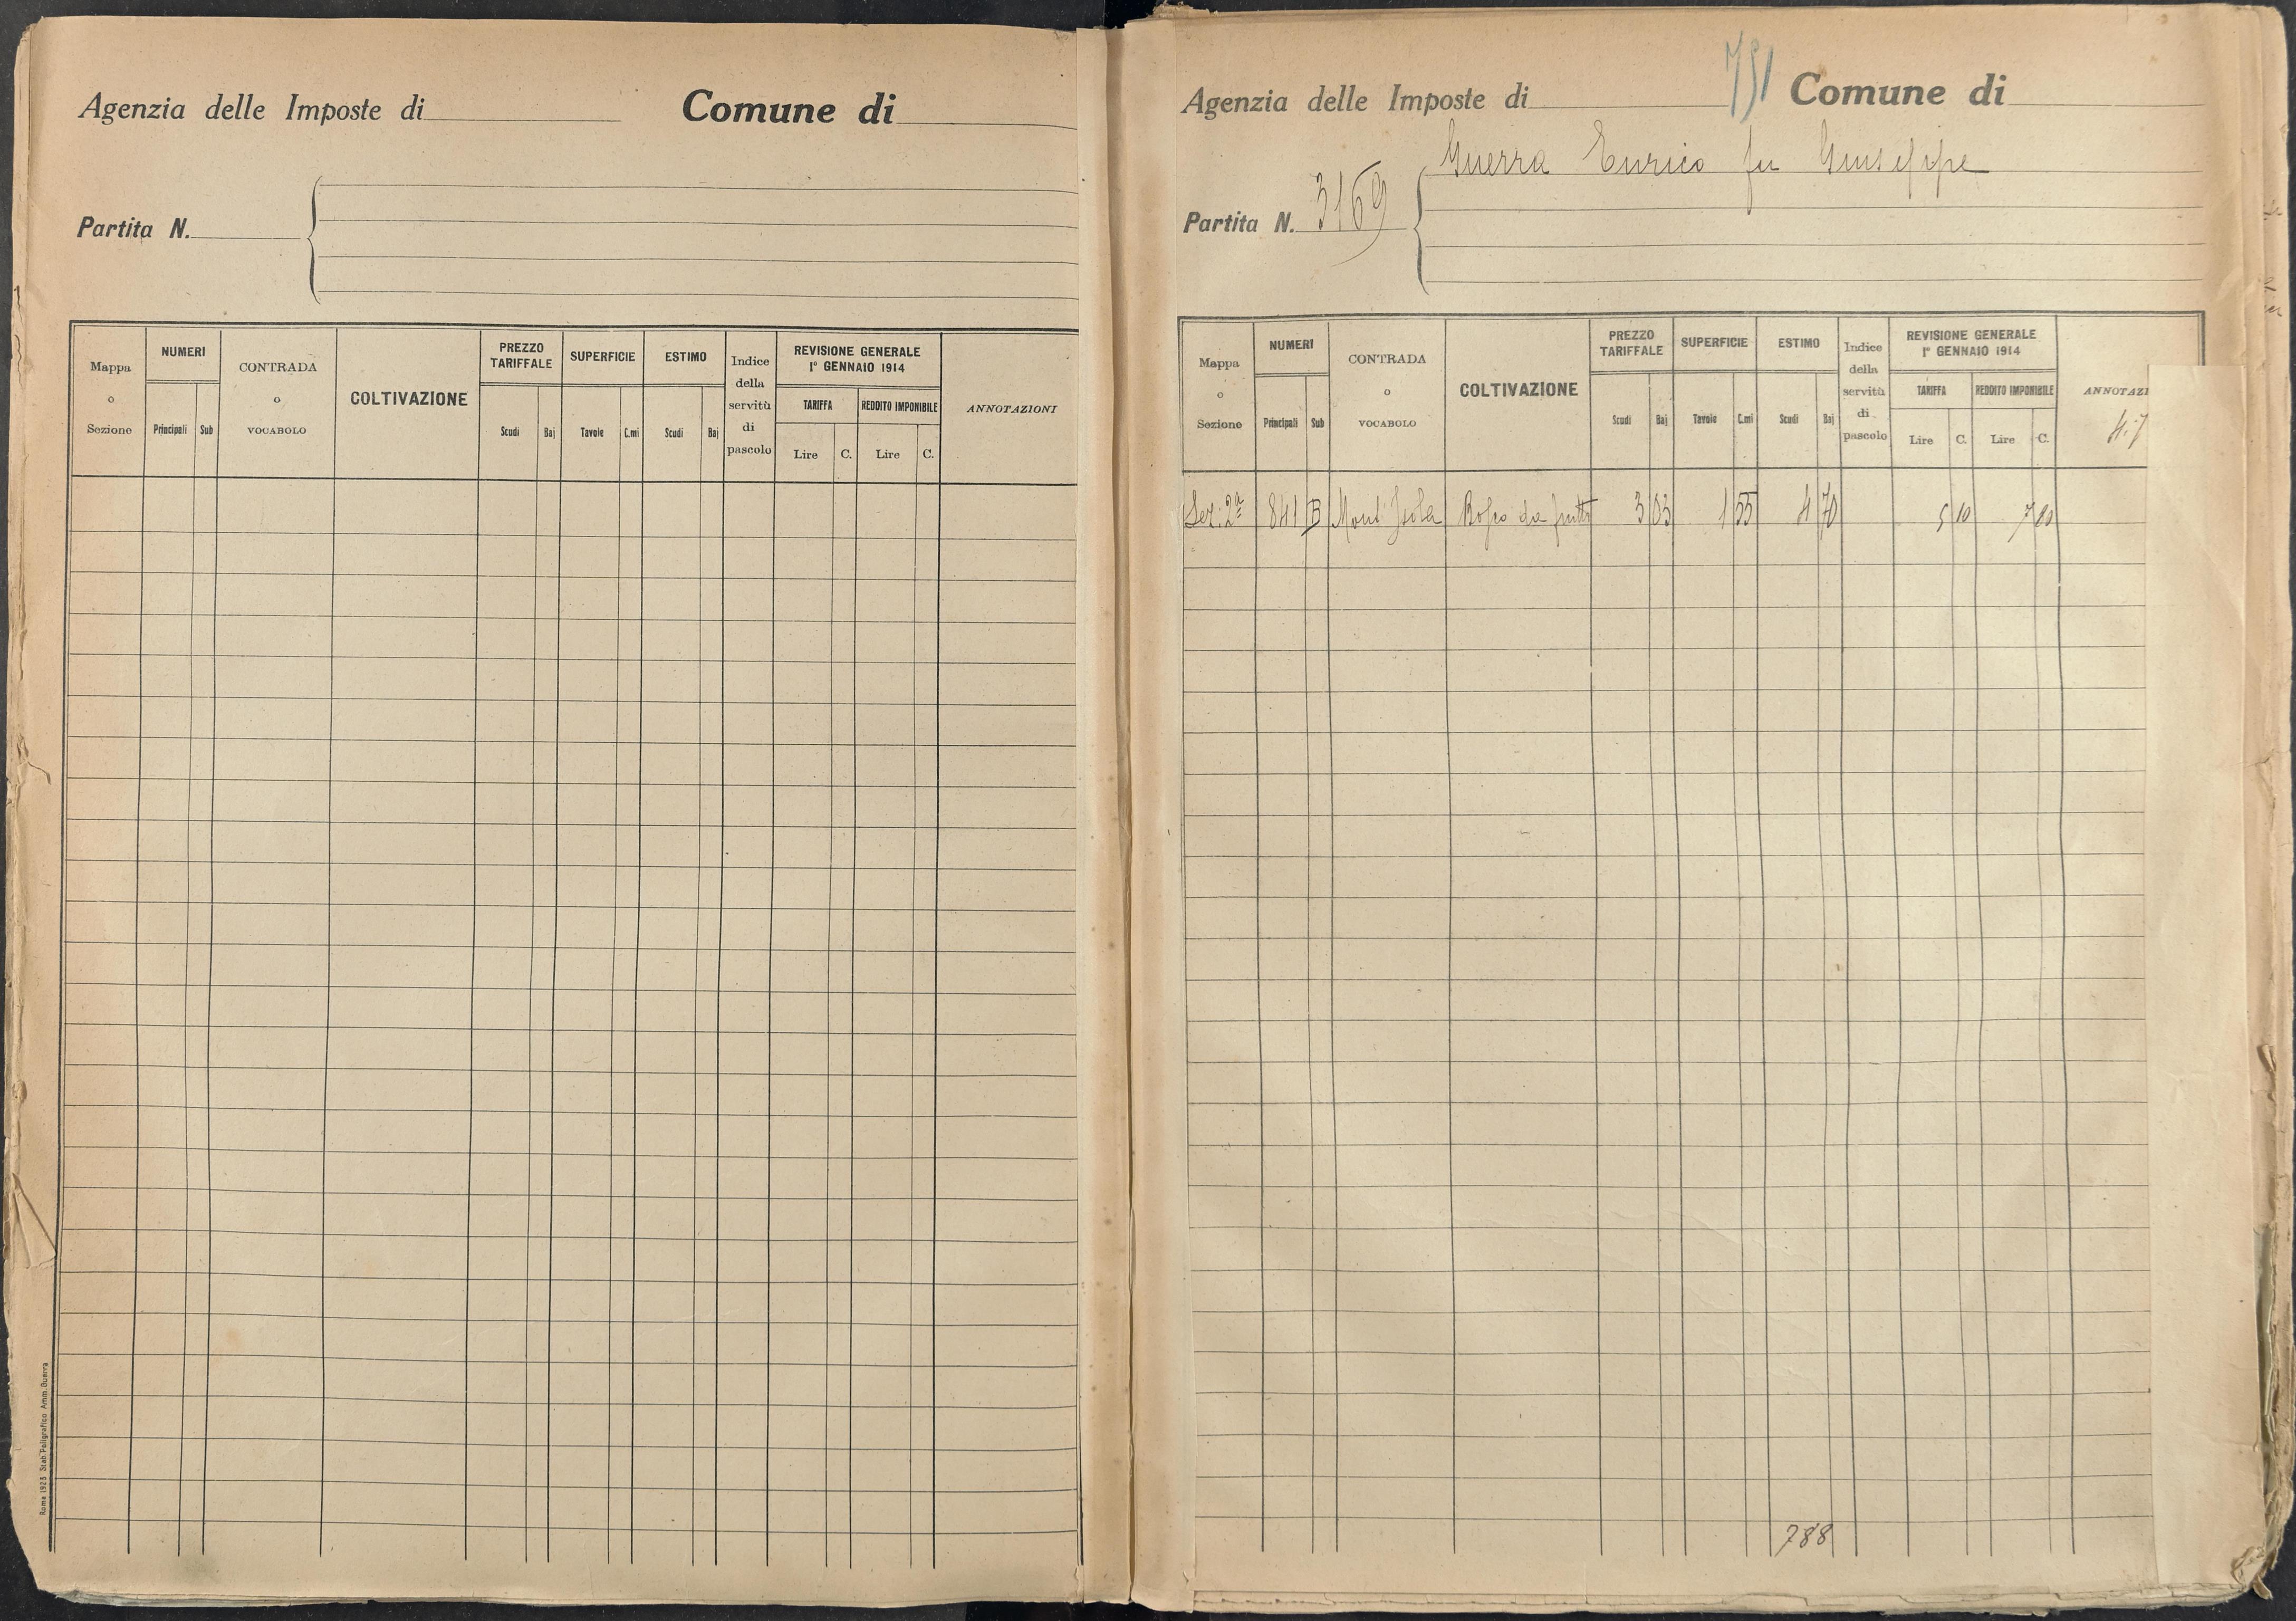 Agenzia delle Imposte di Comune di
Partita N.
Mappa o Sezione
NUMERI
Principali Sub
CONTRADA o VOCABOLO
COLTIVAZIONE
PREZZO TARIFFALE
Scudi Baj
SUPERFICIE
Tavole C.mi
ESTIMO
Scudi Baj
Indice della servitù di pascolo
REVISIONE GENERALE
1° GENNAIO 1914
TARIFFA REDDITO IMPONIBILE
Lire C. Lire C.
ANNOTAZIONI
Roma 1923 Stab. Poligrafico Amm. Guerra
751
Agenzia delle Imposte di Comune di
Guerra Enrico fu Giuseppe
Partita N. 3169
Mappa o Sezione
NUMERI
Principali Sub
CONTRADA o VOCABOLO
COLTIVAZIONE
PREZZO TARIFFALE
Scudi Baj
SUPERFICIE
Tavole C.mi
ESTIMO
Scudi Baj
Indice della servitù di pascolo
REVISIONE GENERALE
1° GENNAIO 1914
TARIFFA REDDITO IMPONIBILE
Lire C. Lire C.
ANNOTAZI
Sez: 2ª 841 B Mont' Isola da frutto 3 03 1 55 4 70 5 10
788